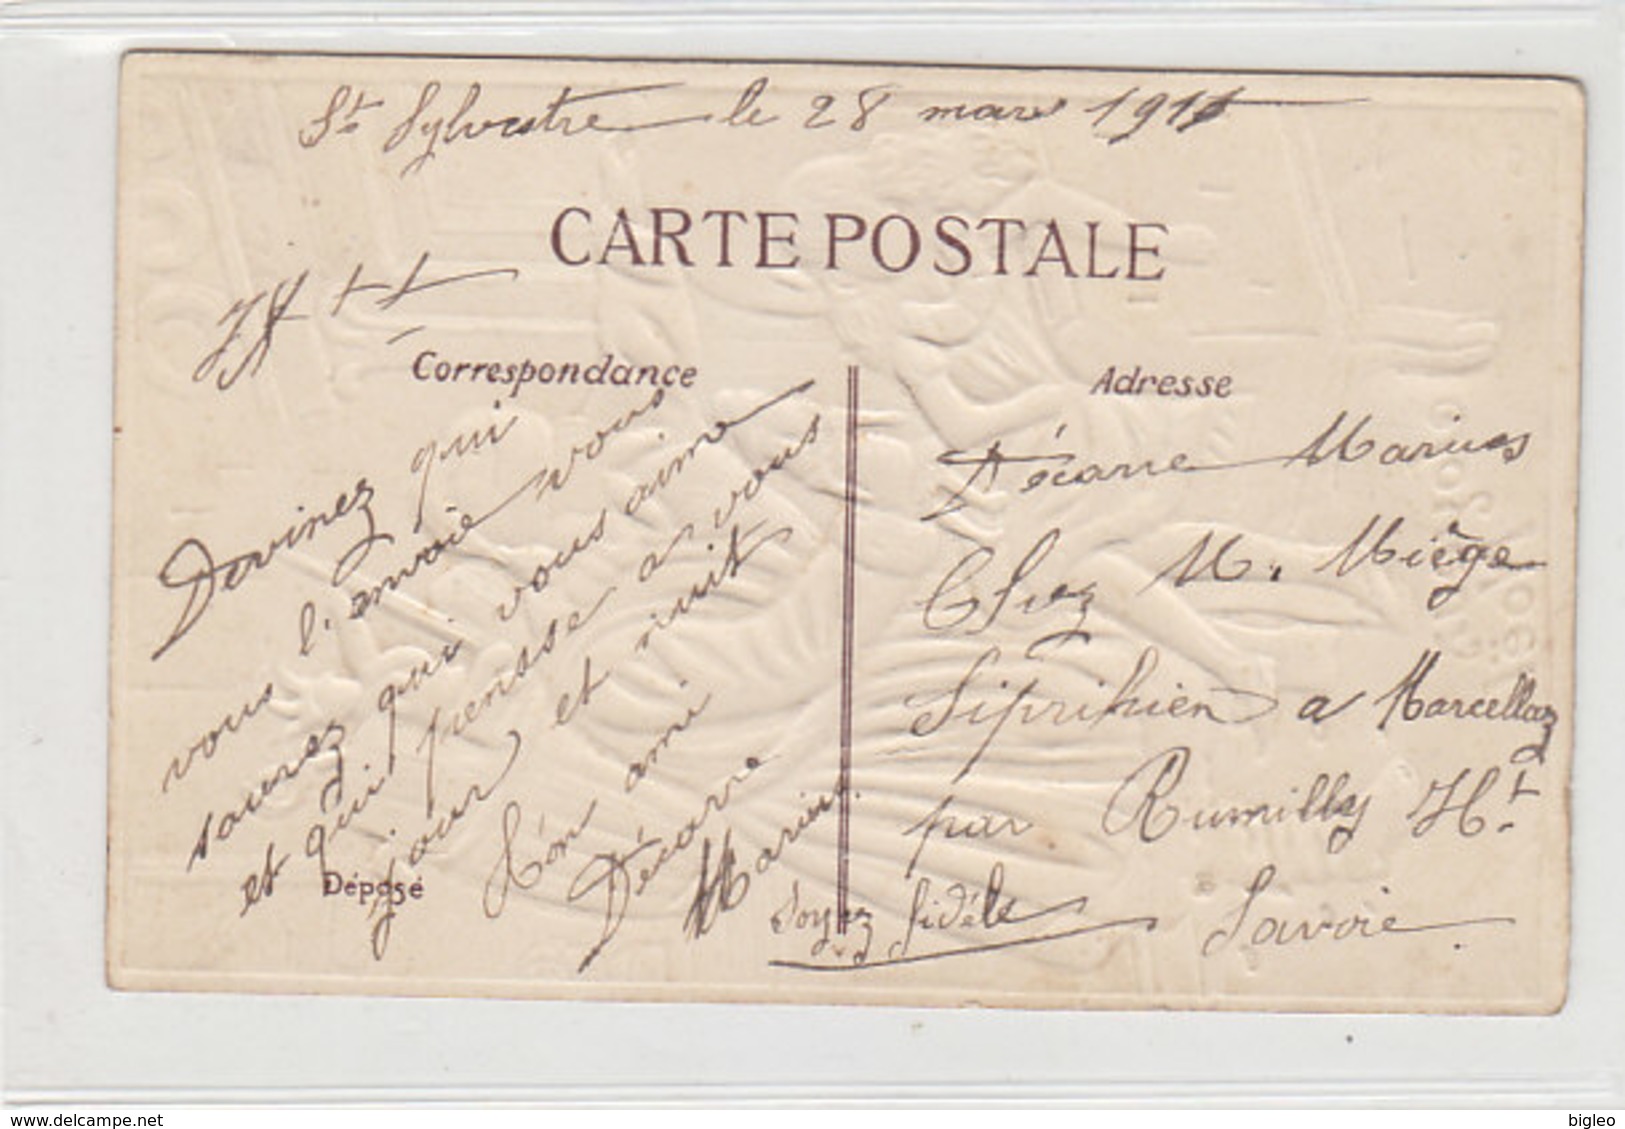 St Sylvestre le 28 mars 1911
CARTE POSTALE
Correspondance
Adresse
Devinez qui
vous l'envoie vous
saurez qui vous aime
et qui pensse a vous
jour et nuit
Ton ami
Décarre
Marius.
Soyez fidéle
Déposé
Décarre Marius
Chez M. Miège
Siprihien a Marcellaz
par Rumilly Ht
Savoie.
delcampe.net
bigleo